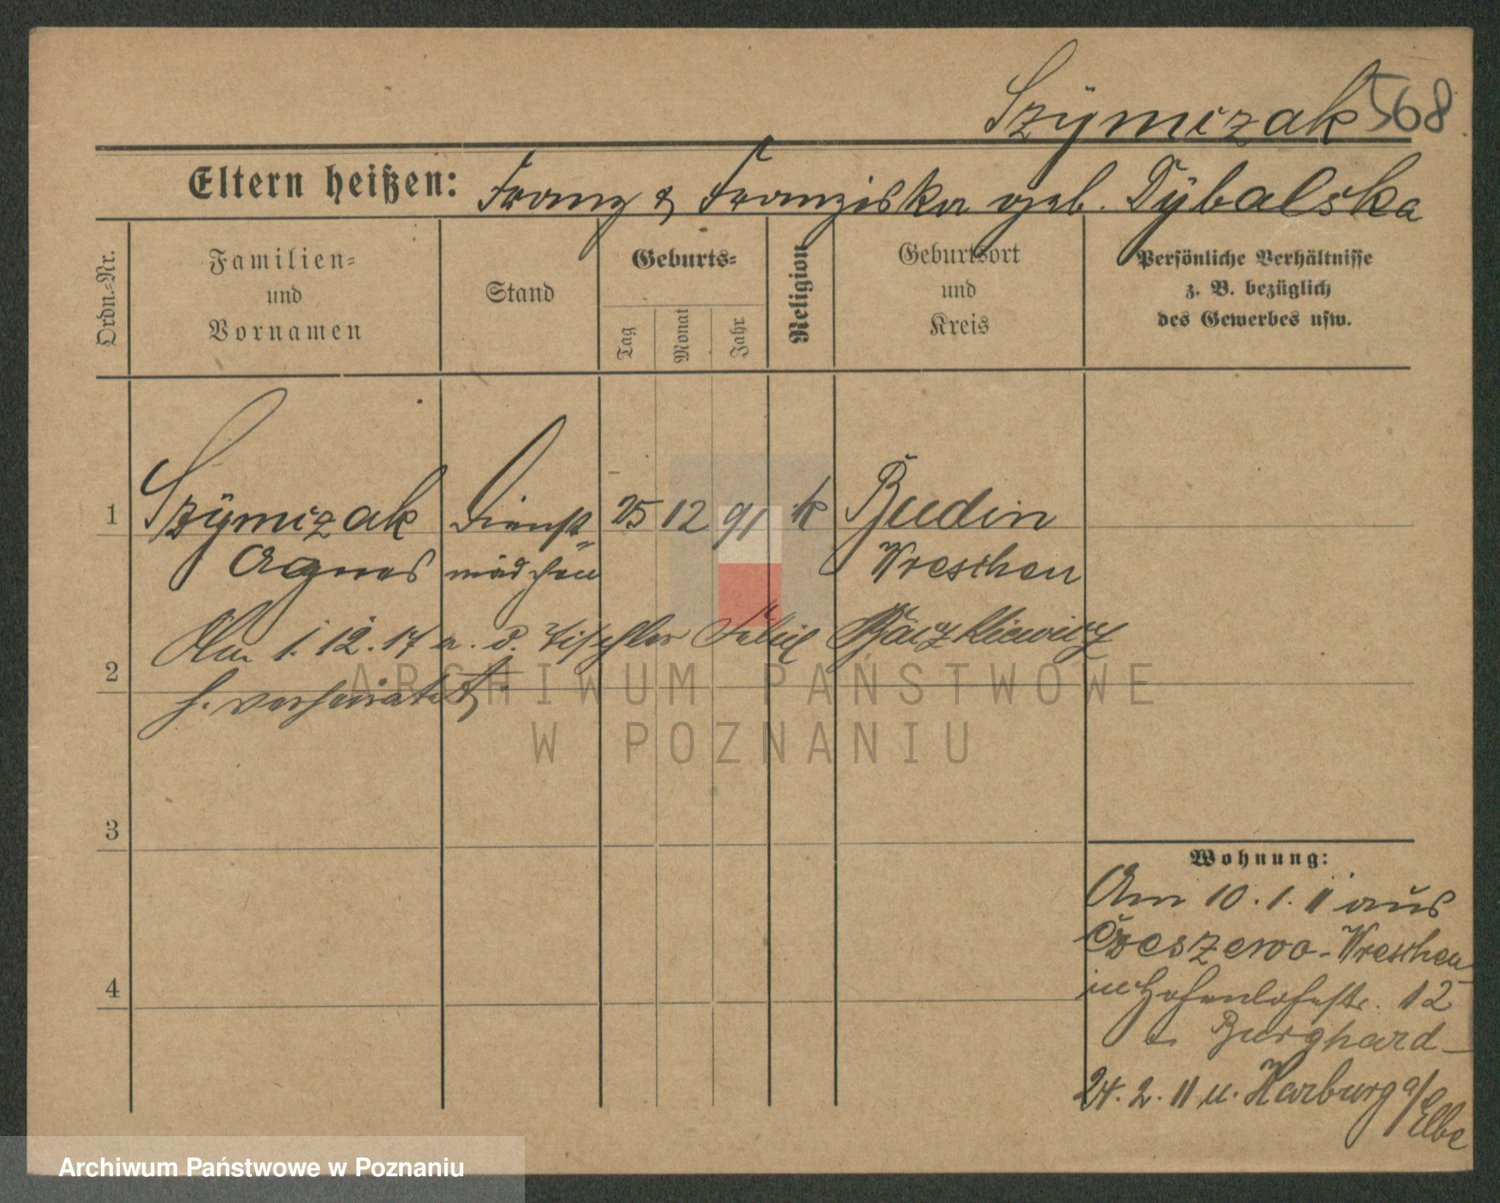 Szymczak 568
Eltern heißen: Franz & Franziska geb. Dybalska
Ordn.-Nr.
Familien-
und
Vornamen
Stand
Geburts-
Tag
Monat
Jahr
Religion
Geburtsort
und
Kreis
Persönliche Verhältnisse
z. B. bezüglich
des Gewerbes usw.
1 Szymczak Dienst- 25 12 91 k Budin
Agnes mädchen Wreschen
Am 1.12.17 m. d. Tischler Felix
2
h. verheiratet.
ARCHIWUM PAŃSTWOWE
W POZNANIU
3
Wohnung:
Am 10.1.11 aus
Czeszewo-Wreschen
in Hohenlohestr. 12
Burghard-
4
24.2.11 n. Harburg a/Elbe
Archiwum Państwowe w Poznaniu